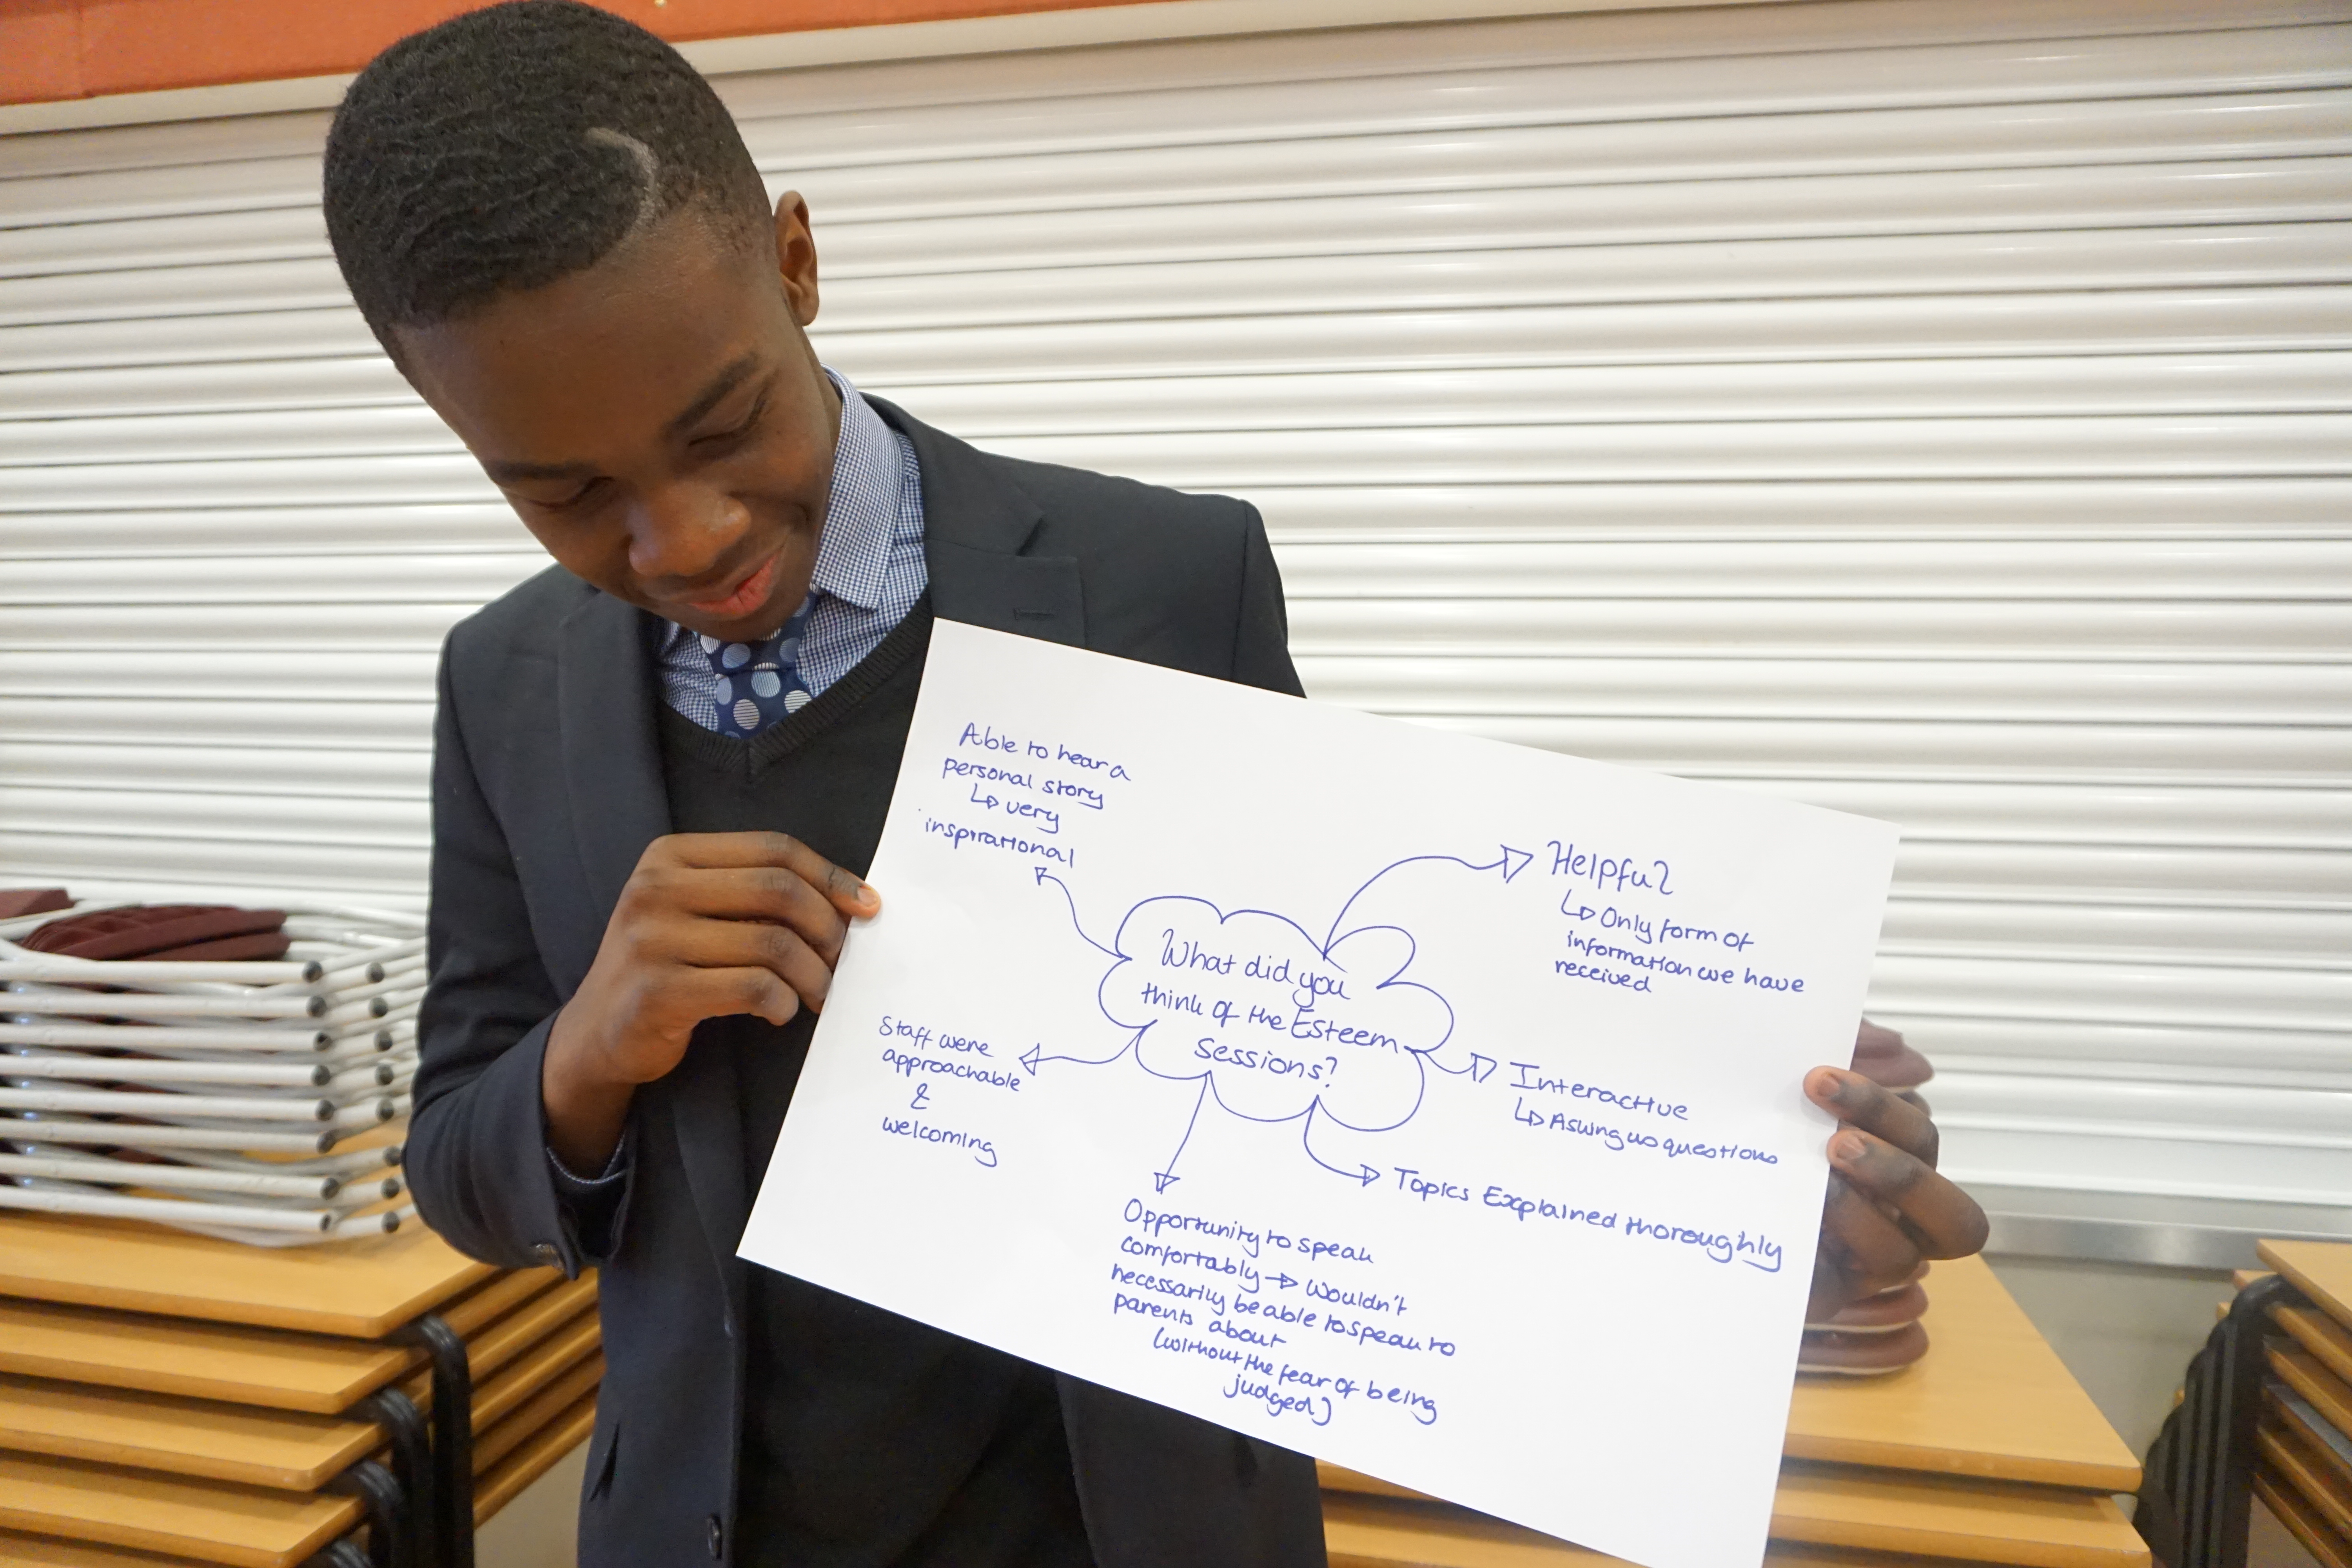 What did you
think of the Esteem
sessions?
Able to hear a
personal story
↳ very
inspirational
Helpful
↳ Only form of
information we have
received
Interactive
↳ Asking us questions
Topics Explained thoroughly
Opportunity to speak
comfortably → wouldn't
necessarily be able to speak to
parents about
(without the fear of being
judged)
Staff were
approachable
&
welcoming